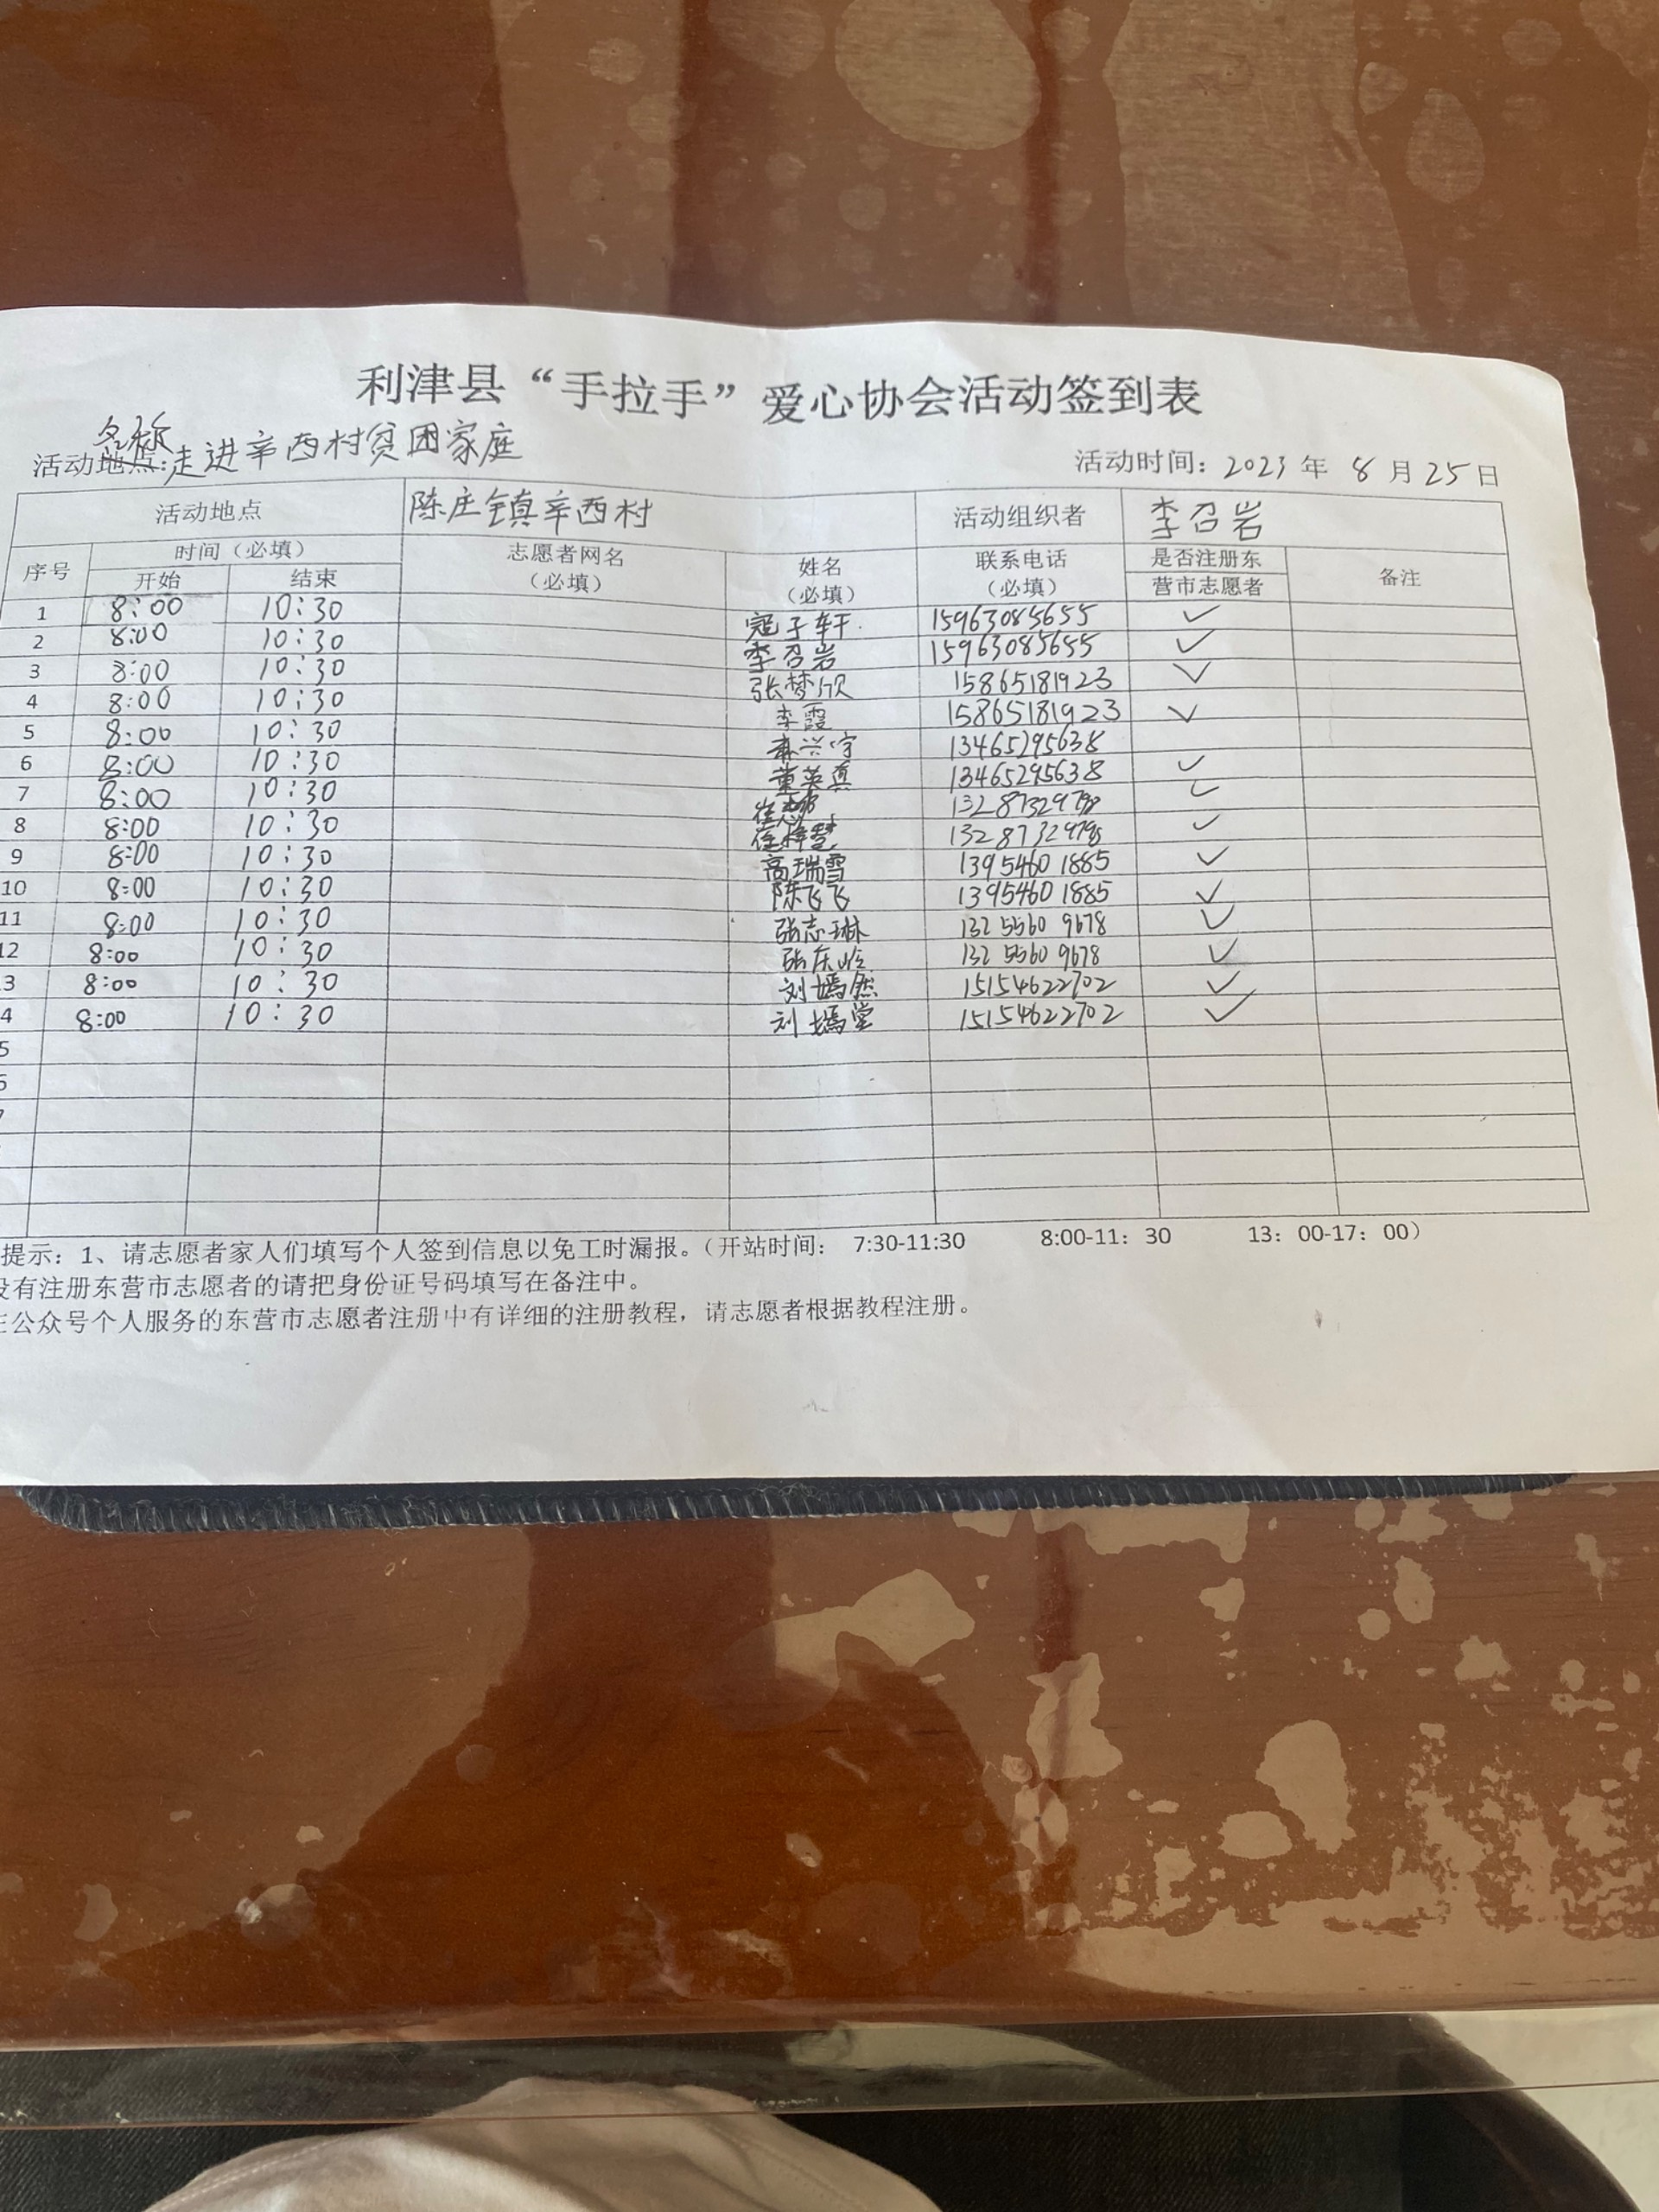 利津县“手拉手”爱心协会活动签到表
名称
活动地点:走进辛西村贫困家庭 活动时间：2023 年 8 月 25 日
活动地点 陈庄镇辛西村 活动组织者 李召岩
序号 时间（必填） 志愿者网名 姓名 联系电话 是否注册东 备注
开始 结束 （必填） （必填） （必填） 营市志愿者
1 8:00 10:30 寇子轩 15963085655 ✓
2 8:00 10:30 李召岩 15963085655 ✓
3 8:00 10:30 张梦欣 15865181923 ✓
4 8:00 10:30 李霞 15865181923 ✓
5 8:00 10:30 兴宇 13465295638
6 8:00 10:30 董英真 13465295638 ✓
7 8:00 10:30 崔 ✓
8 8:00 10:30 崔梓慧 ✓
9 8:00 10:30 高瑞雪 13954601885 ✓
10 8:00 10:30 陈飞飞 13954601885 ✓
11 8:00 10:30 张志琳 132 5560 9678 ✓
12 8:00 10:30 张庆 132 5560 9678 ✓
3 8:00 10:30 刘嫣然 15154622702 ✓
4 8:00 10:30 刘嫣堂 15154622702 ✓
5
6
7
提示：1、请志愿者家人们填写个人签到信息以免工时漏报。（开站时间： 7:30-11:30 8:00-11：30 13：00-17：00）
没有注册东营市志愿者的请把身份证号码填写在备注中。
在公众号个人服务的东营市志愿者注册中有详细的注册教程，请志愿者根据教程注册。